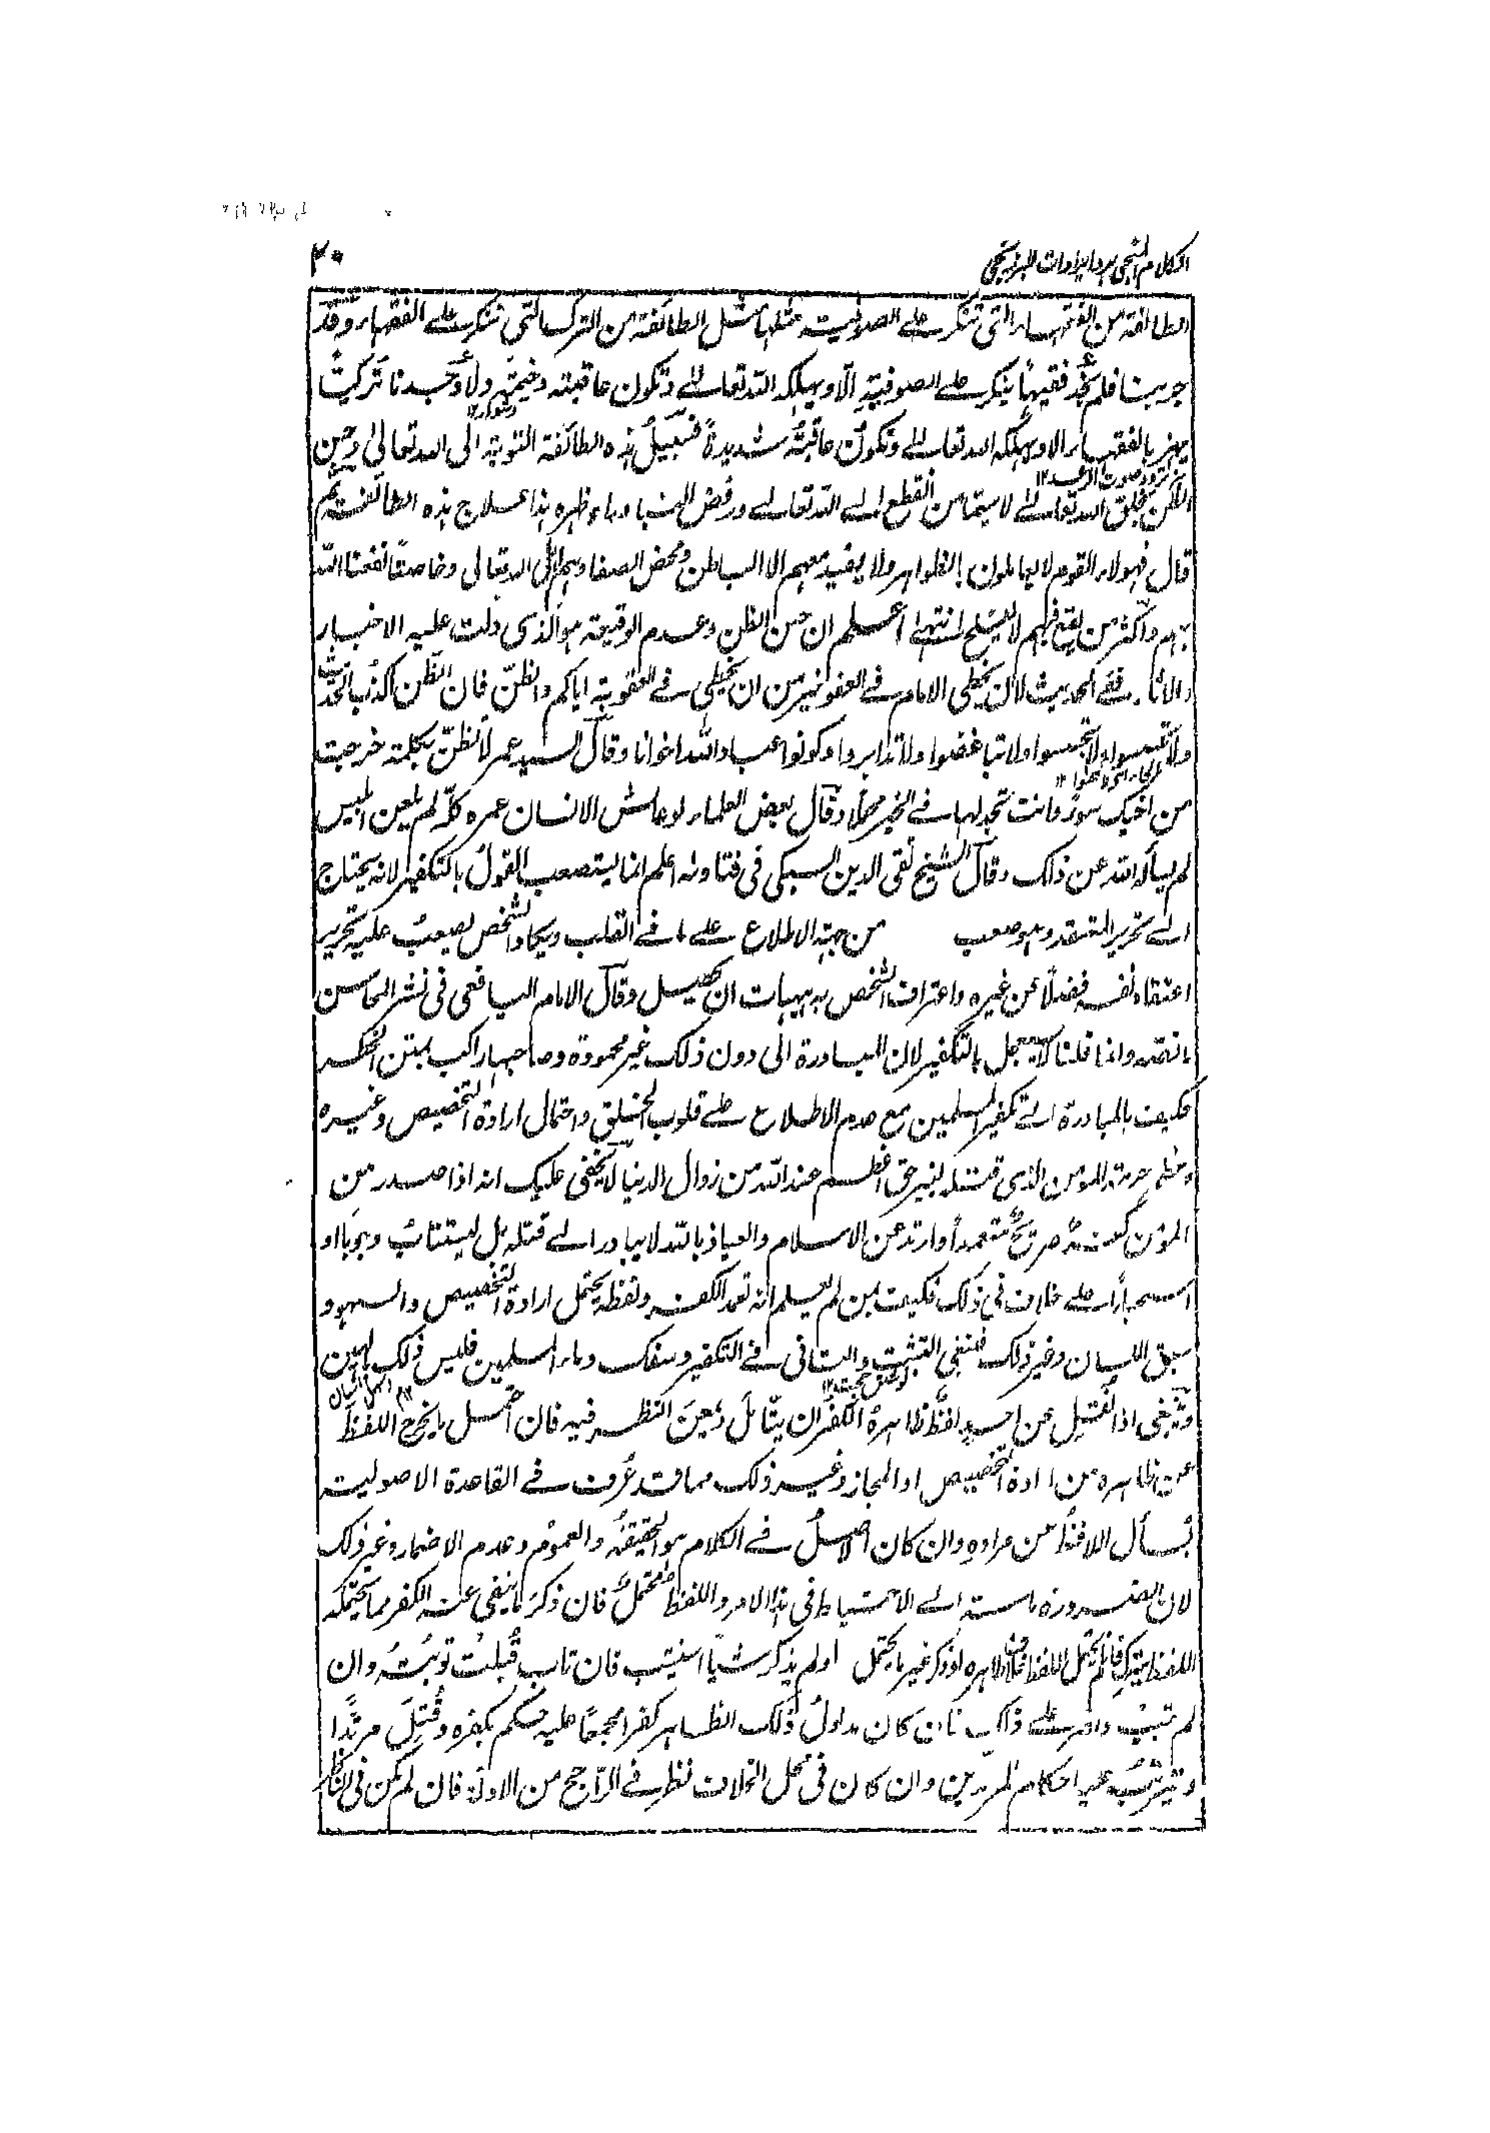 الكلام المنجي برد ايرادات البرزنجي
٢٠
الطائفة من الفقهاء التي تنكر على الصوفية مثلها مثل الطائفة من الترك التي تنكر على الفقهاء وقد
جربنا فلم نجد فقيهاً ينكر على الصوفية الا ويهلكه الله تعالى وتكون عاقبته وخيمة ولا وجدنا تركيّاً
يهزء بالفقهاء الا ويهلكه الله تعالى وتكون عاقبتُه شديدةً فسبيلُ هذه الطائفة التوبة الى الله تعالى وحسن
الظن بخلق الله تعالى لا سيما من انقطع الى الله تعالى ورفض الدنيا وراء ظهره هذا علاج هذه الطائفة ثم
قال فهولاء القوم لا يعاملون بالظواهر ولا يفيد معهم الا الباطن ومحض الصفا وهم اهل الله تعالى وخاصته نفعنا الله
بهم واكثر من يقع فيهم لا يفلح انتهى اعلم ان حسن الظن وعدم الوقيعة هو الذي دلت عليه الاخبار
والاثار ففي الحديث لان يخطي الامام في العفو خير من ان يخطي في العقوبة اياكم والظنّ فان الظن اكذب الحديث
ولا تجسسوا ولا تحسسوا ولا تباغضوا ولا تدابروا وكونوا عباد الله اخوانا وقال السيد عمر لا تظنّ بكلمة خرجت
من اخيك سوءً وانت تجد لها في الخير محملا وقال بعض العلماء لو عاش الانسان عمره كلّه لم يلعن ابليس
لم يسأله الله عن ذلك وقال الشيخ تقي الدين السبكي في فتاوئه اعلم انما يستصعب القولُ بالتكفير لانه يحتاج
الى تحرير المعتقد وهو صعب من جهة الاطلاع على ما في القلب ويكاد الشخص يصعبُ عليه تحرير
اعتقاد نفسه فضلًا عن غيره واعتراف الشخص به هيهات ان يحصل وقال الامام اليافعي في نشر المحاسن
ما نصّه واذا قلنا لا يعجل بالتكفير لان المبادرة الى دون ذلك غير محمودة وصاحبها راكب متن الخطر
فكيف بالمبادرة الى تكفير المسلمين مع عدم الاطلاع على قلوب الخلق واحتمال ارادة التخصيص وغيره
وعظم حرمة المومن الذي قتله بغير حق اعظم عند الله من زوال الدنيا لا يخفى عليك انه اذا صدر من
المؤمن كفرٌ صريحٌ متعمداً او ارتد عن الاسلام والعياذ بالله لا يبادر الى قتله بل يستتابُ وجوبا او
استحباباً على خلاف في ذلك فكيف بمن لم يعلم انه تعمد الكفر ولفظه يحتمل ارادة التخصيص والسهو و
سبق اللسان وغير ذلك فينبغي التثبت والتاني في التكفير وسفك دماء المسلمين فليس ذلك بهين
وينبغي اذا نُقل عن احدٍ لفظٌ ظاهرهُ الكفر ان يتأمل ويُمعن النظر فيه فان احتمل ما يخرج اللفظ
عن ظاهره من ارادة التخصيص او المجاز وغير ذلك مما قد عُرف في القاعدة الاصولية
يُسأل اللافظُ عن مراده وان كان الاصلُ في الكلام هو الحقيقةُ والعموم وعدم الاضمار وغير ذلك
لان الضرورة ماسة الى الاحتياط في هذا الامر واللفظ محتملٌ فان ذكر ما ينفي عنه الكفر مما يحتمله
اللفظ يترك فان لم يحتمل اللفظ خلاف ظاهره او ذكر غير ما يحتمل او لم يذكر شيئًا استتيب فان تاب قُبلت توبتُه وان
لم يتب واصر على ذلك فان كان مدلولُ ذلك الظاهر كفرا مجمعًا عليه حكم بكفره وقُتِلَ مرتدًا
ويترتبُ عليه احكام المرتدين وان كان في محل الخلاف نظر في الرّاجح من الادلة فان لم يكن في الناظر